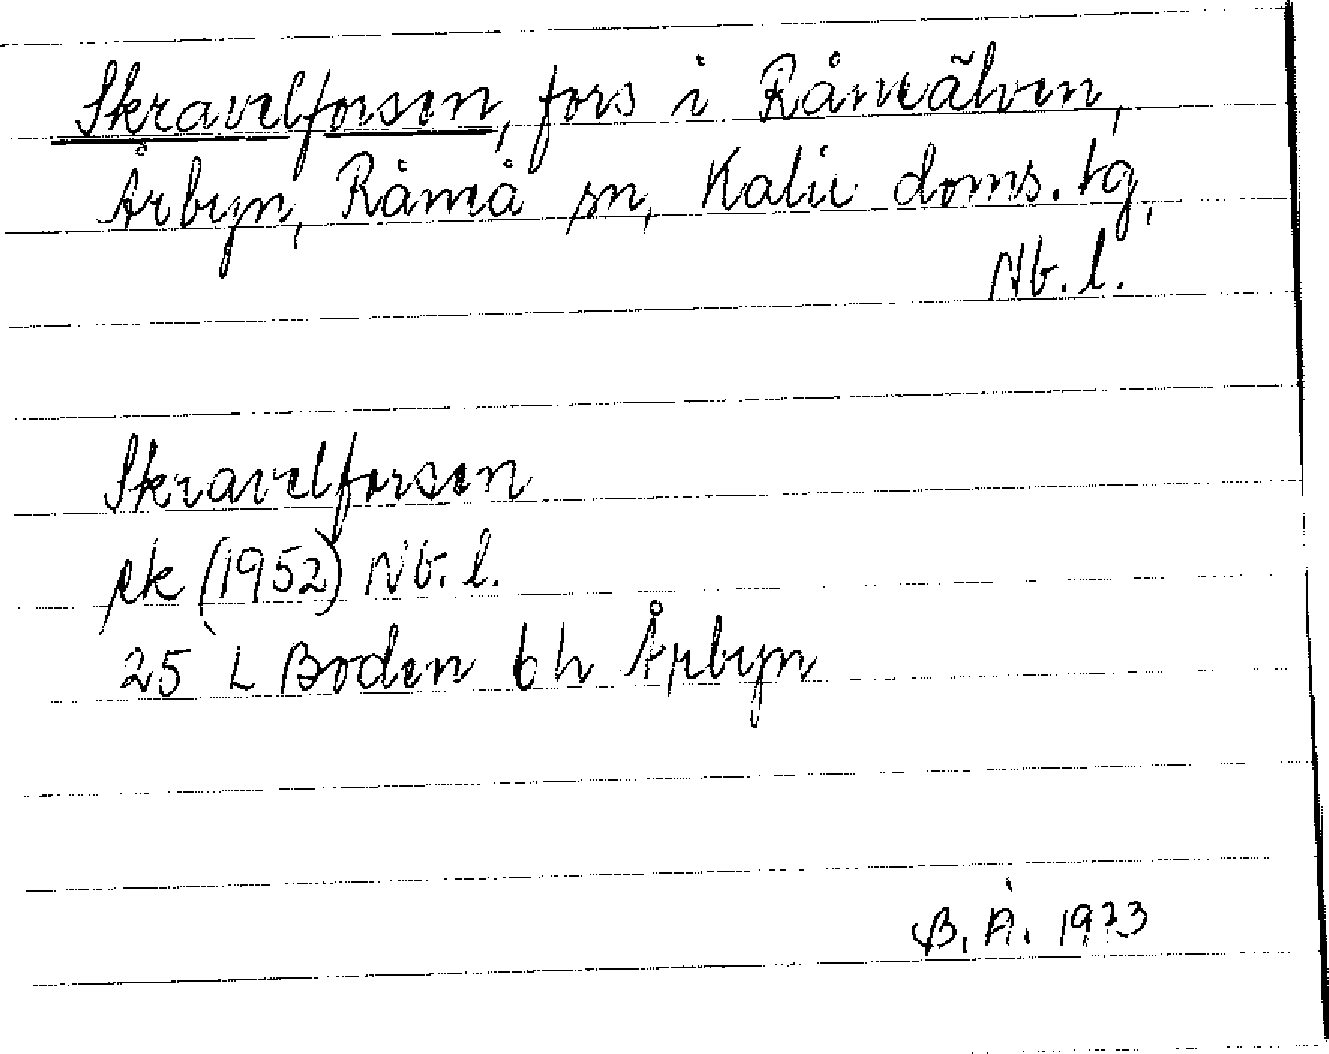 Skravelforsen, fors i Råneälven,
Årbyn, Råneå sn, Kalix doms. tg,
Nb. l.
Skravelforsen
ek (1952) Nb. l.
25 L Boden 6 h Årbyn
B. Å. 1973